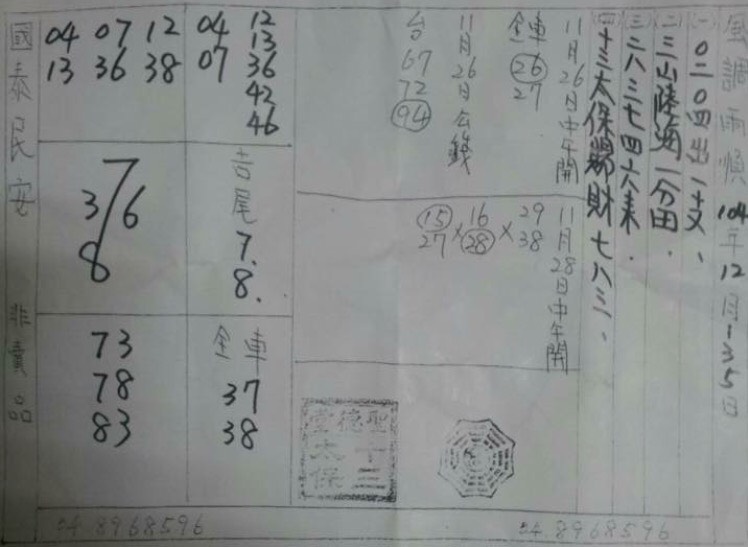 風調雨順 104年12月1-3-5日
(一)0二0四出一十支、
(二)三山陸海一分田.
(三)三六三七四六來.
(四)十三太保賜財七八三、
11月26日中午開
全車
26
27
11月26日公錢
台
67
72
94
11月28日中午開
29 16 15
38 × 28 × 27
聖德堂
十三
太保
12
04 13
07 36
42
46
04 07 12
13 36 38
吉尾
7.
8.
7
3/6
8
全車
37
38
73
78
83
國泰民安
非賣品
04 8968596
04 8968596